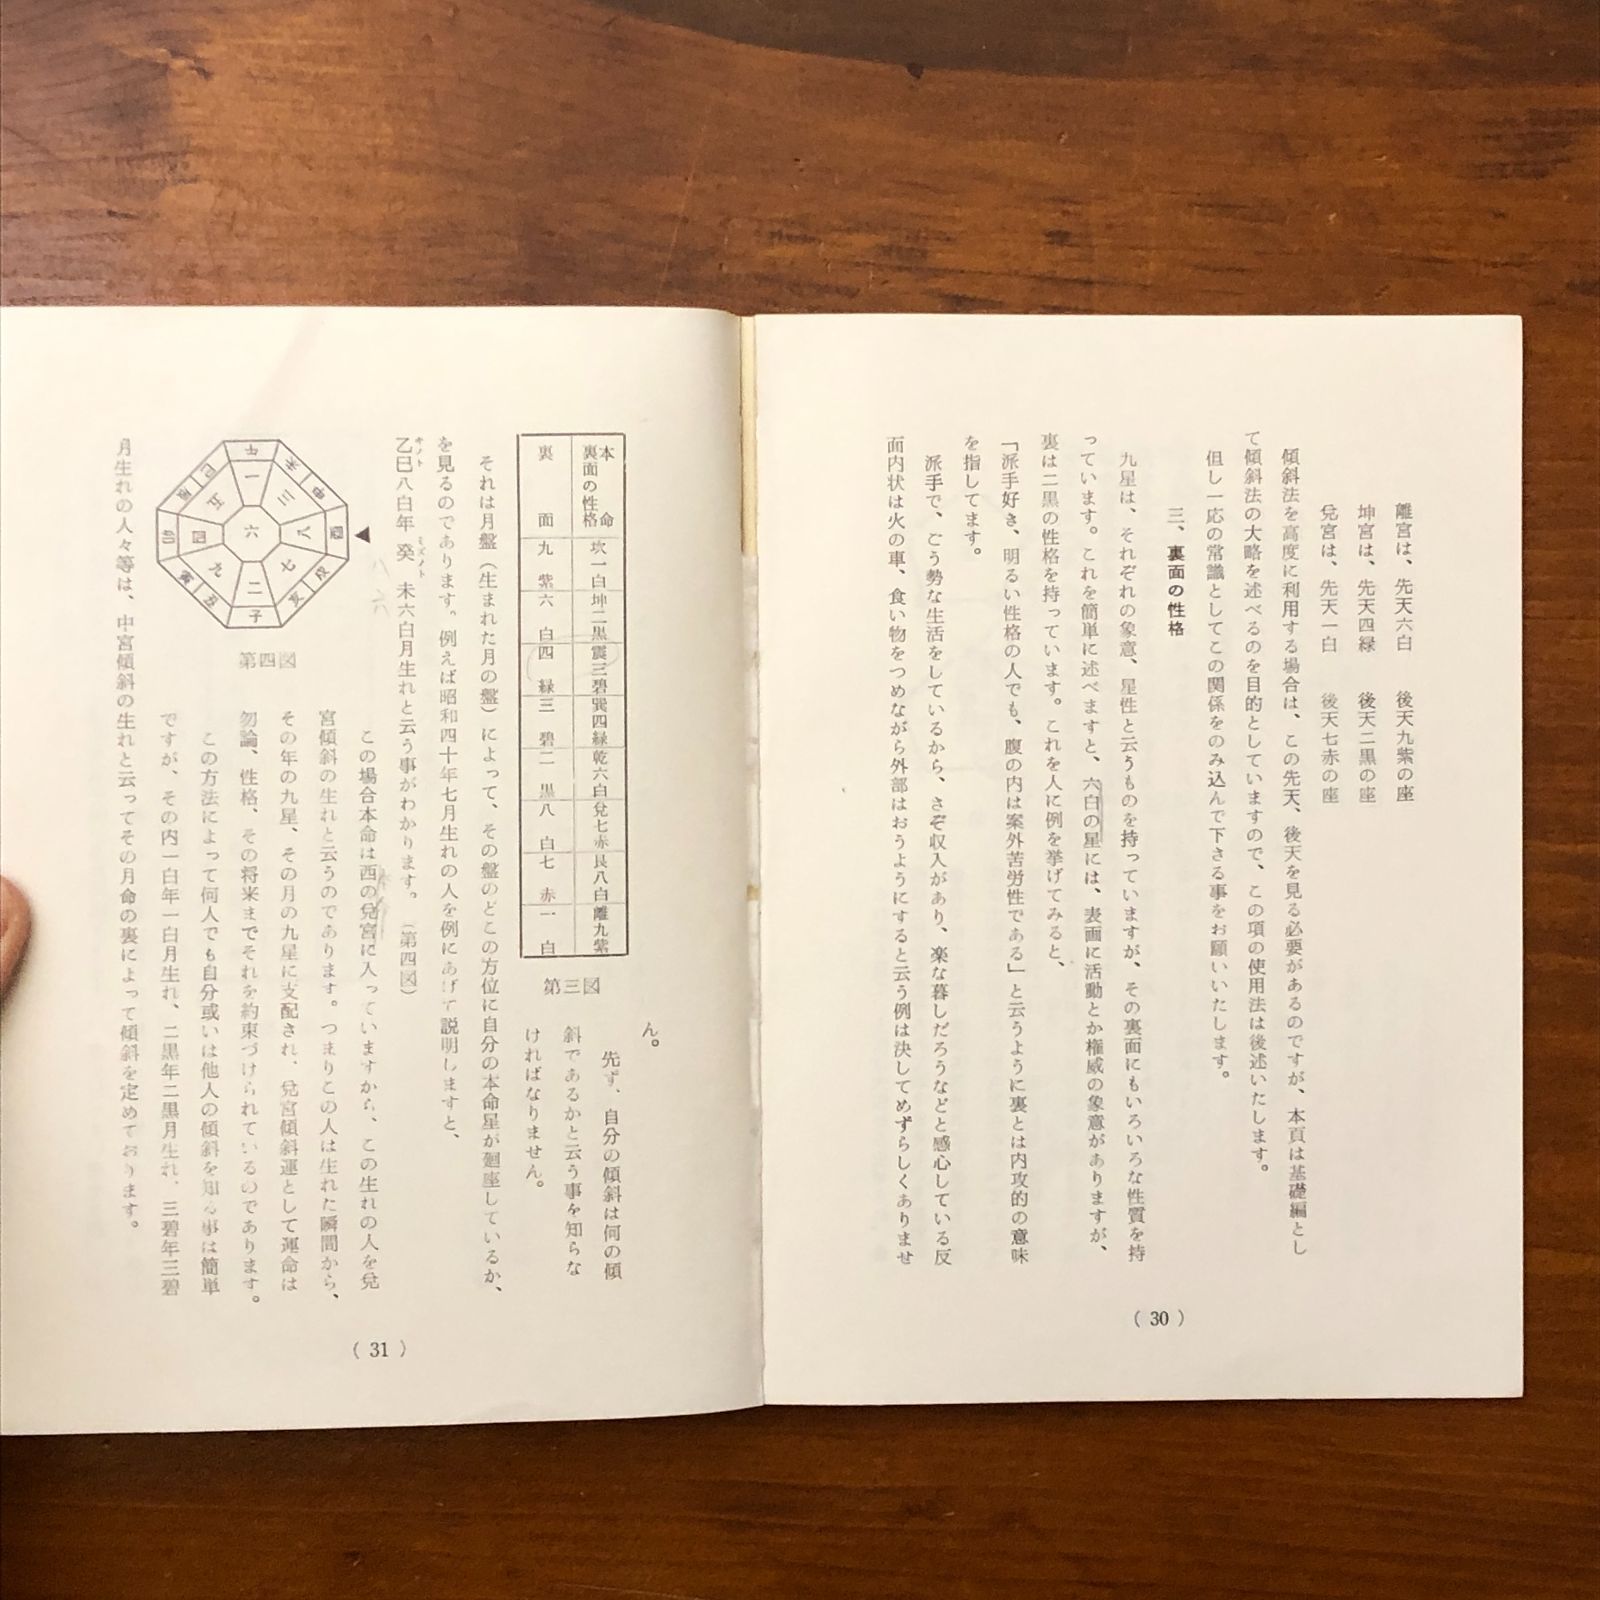 離宮は、先天六白　後天九紫の座
坤宮は、先天四緑　後天二黒の座
兌宮は、先天一白　後天七赤の座
傾斜法を高度に利用する場合は、この先天、後天を見る必要があるのですが、本頁は基礎編とし
て傾斜法の大略を述べるのを目的としていますので、この項の使用法は後述いたします。
但し一応の常識としてこの関係をのみ込んで下さる事をお願いいたします。
三、裏面の性格
九星は、それぞれの象意、星性と云うものを持っていますが、その裏面にもいろいろな性質を持
っています。これを簡単に述べますと、六白の星には、表面に活動とか権威の象意がありますが、
裏は二黒の性格を持っています。これを人に例を挙げてみると、
「派手好き、明るい性格の人でも、腹の内は案外苦労性である」と云うように裏とは内攻的の意味
を指してます。
派手で、ごう勢な生活をしているから、さぞ収入があり、楽な暮しだろうなどと感心している反
面内状は火の車、食い物をつめながら外部はおうようにすると云う例は決してめずらしくありませ
（30）
ん。
先ず、自分の傾斜は何の傾
斜であるかと云う事を知らな
ければなりません。
本命 坎一白 坤二黒 震三碧 巽四緑 乾六白 兌七赤 艮八白 離九紫
裏面の性格
裏面 九紫 六白 四緑 三碧 二黒 八白 七赤 一白
第三図
それは月盤（生まれた月の盤）によって、その盤のどこの方位に自分の本命星が廻座しているか、
を見るのであります。例えば昭和四十年七月生れの人を例にあげて説明しますと、
乙巳八白年　癸　未六白月生れと云う事がわかります。（第四図）
キノト
ミズノト
八
六
この場合本命は西の兌宮に入っていますから、この生れの人を兌
宮傾斜の生れと云うのであります。つまりこの人は生れた瞬間から、
その年の九星、その月の九星に支配され、兌宮傾斜運として運命は
勿論、性格、その将来までそれを約束づけられているのであります。
この方法によって何人でも自分或いは他人の傾斜を知る事は簡単
ですが、その内一白年一白月生れ、二黒年二黒月生れ、三碧年三碧
午 未 申 酉 戌 亥 子 丑 寅 卯 辰 巳
一 三 八 七 二 九 四 五
六
第四図
月生れの人々等は、中宮傾斜の生れと云ってその月命の裏によって傾斜を定めております。
（31）